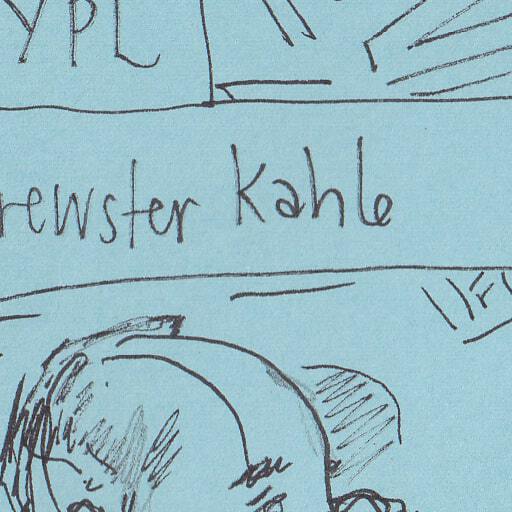 YPL
rewster Kahle